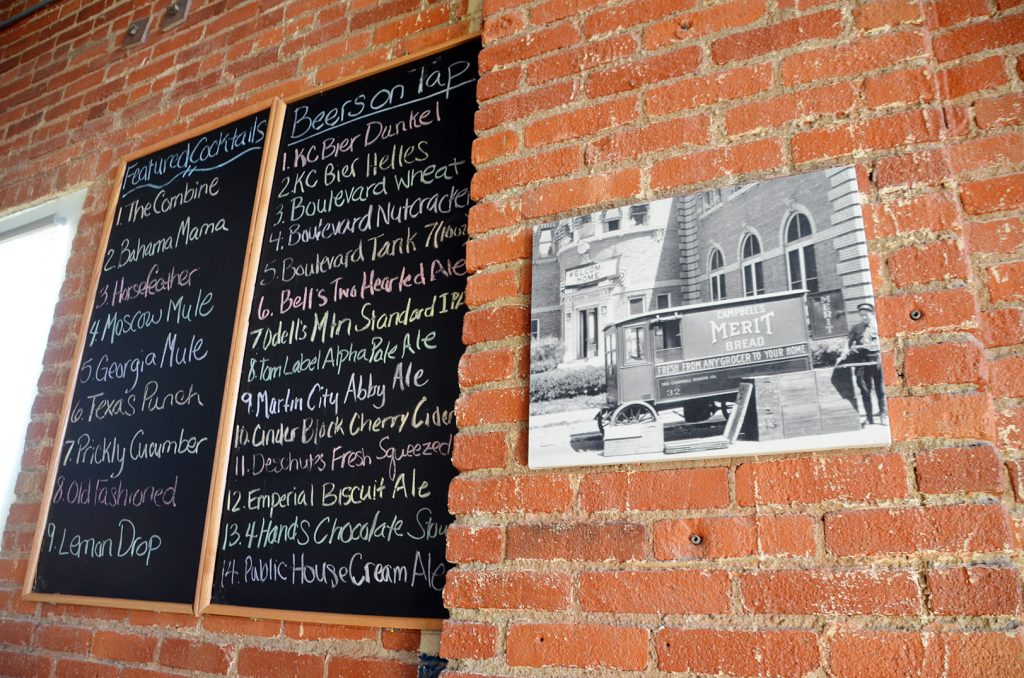 Featured Cocktails
1. The Combine
2. Bahama Mama
3. Horsefeather
4. Moscow Mule
5. Georgia Mule
6. Texas Punch
7. Prickly Cucumber
8. Old Fashioned
9. Lemon Drop
Beers on Tap
1. KC Bier Dunkel
2. KC Bier Helles
3. Boulevard Wheat
4. Boulevard Nutcracker
5. Boulevard Tank 7 (10oz
6. Bell's Two Hearted Ale
7. Odell's Mtn Standard IPA
8. Tom Label Alpha Pale Ale
9. Martin City Abby Ale
10. Cinder Block Cherry Cider
11. Deschuts Fresh Squeezed
12. Emperial Biscuit Ale
13. 4 Hands Chocolate Stou
14. Public House Cream Ale
WELCOME
HOME
CAMPBELL'S
MERIT
BREAD
FRESH FROM ANY GROCER TO YOUR HOME
THE CAMPBELL BAKING CO.
32
MERIT